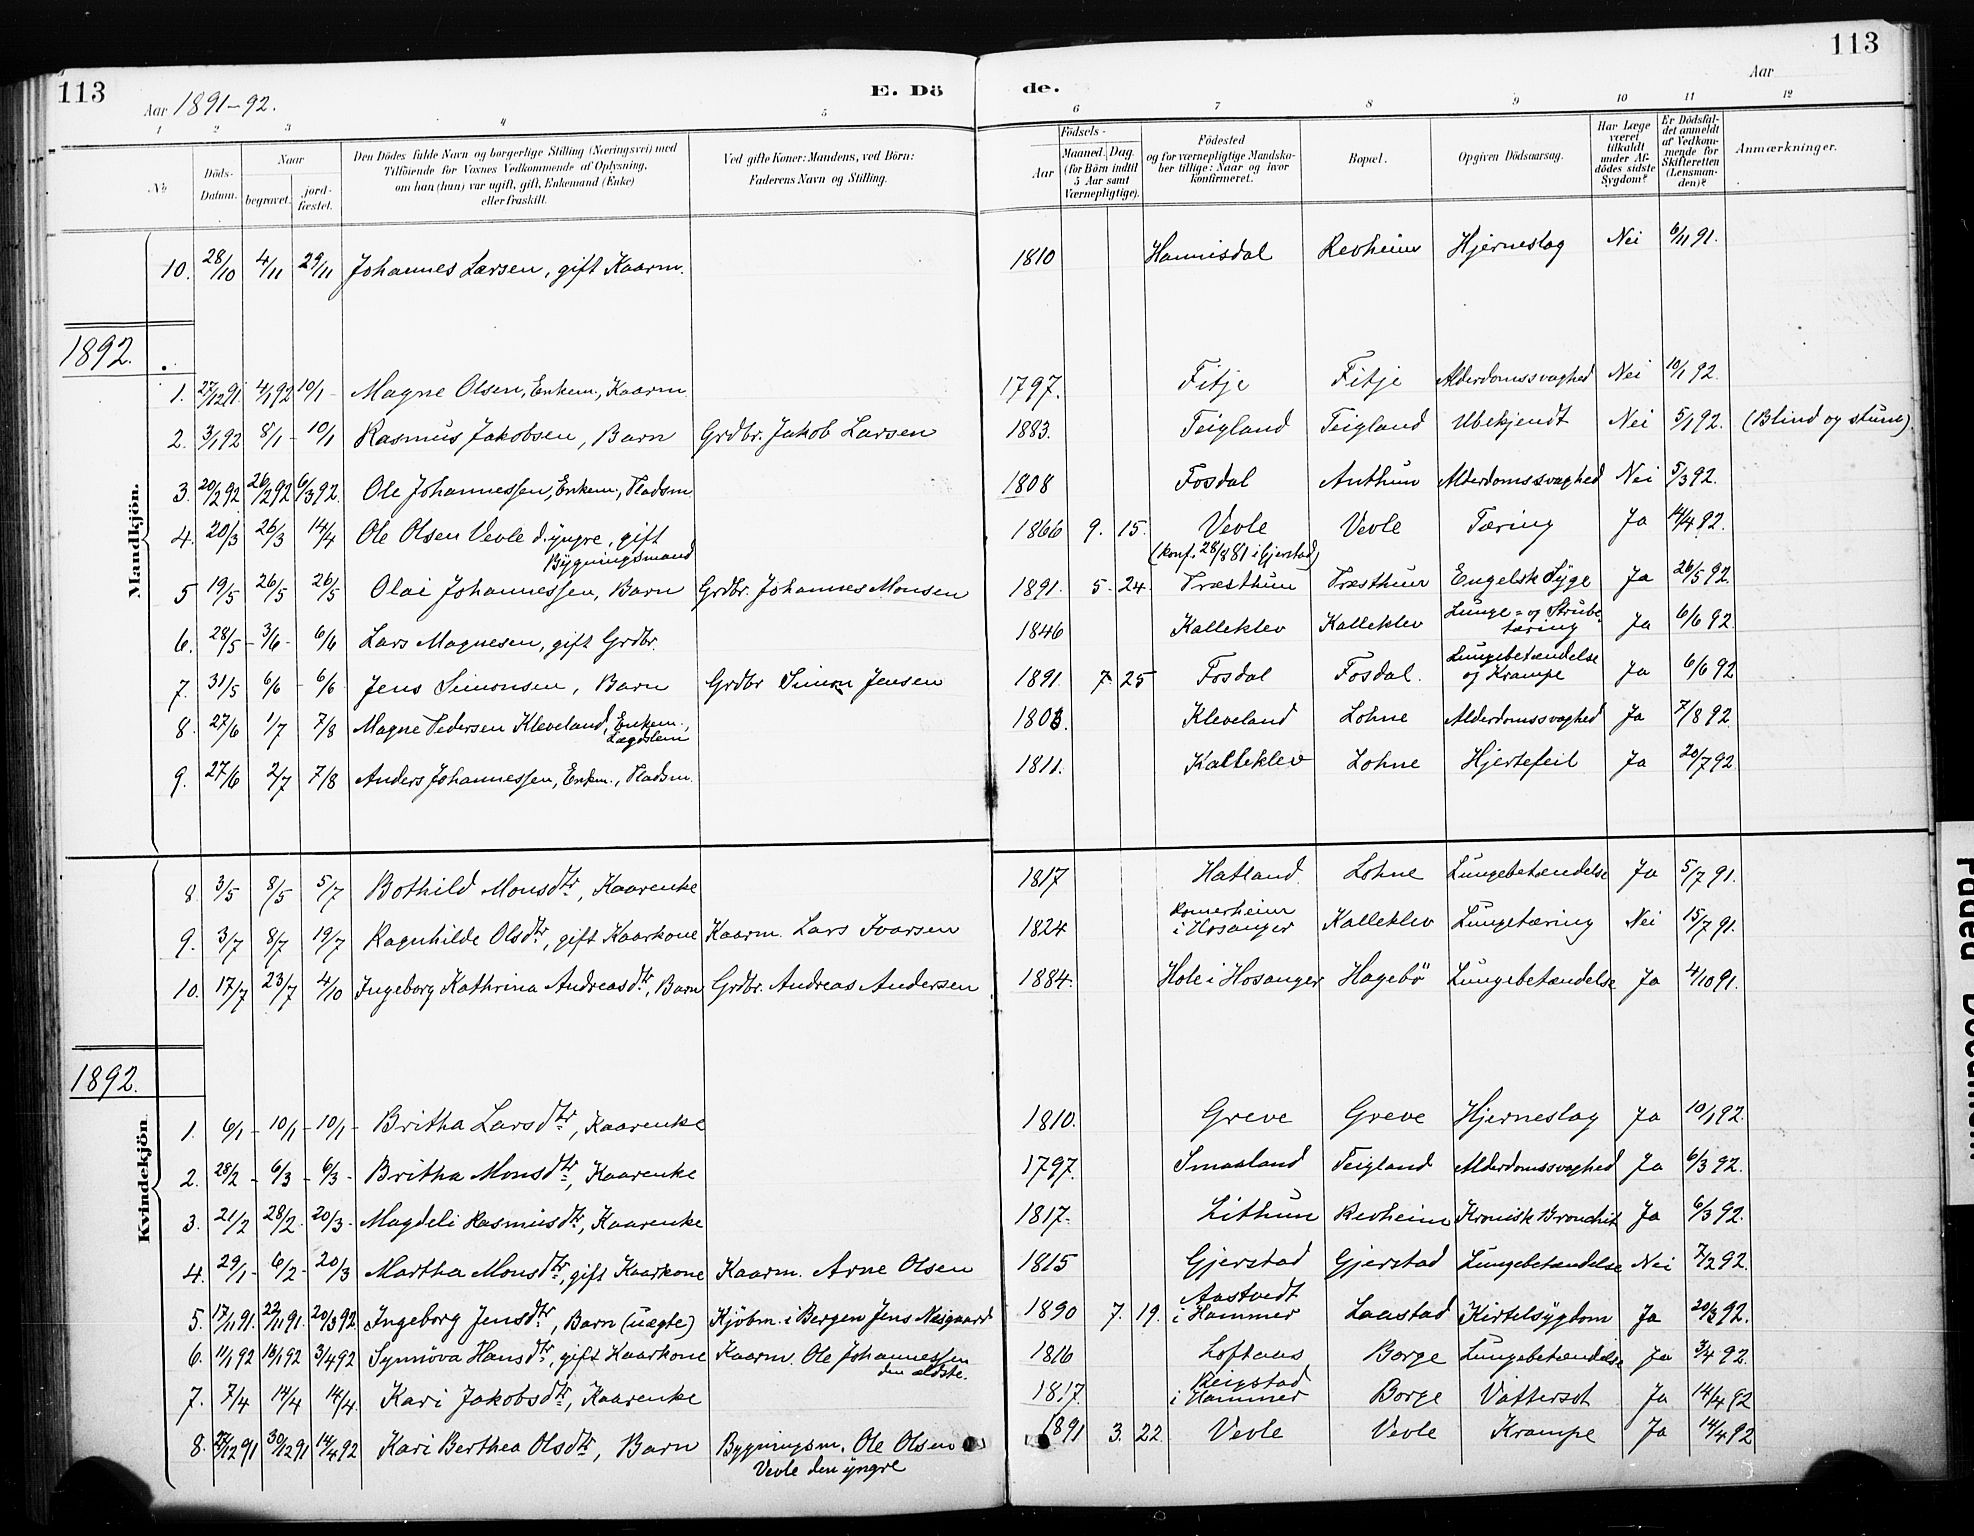 113
Aar 1891-92.
E. Dö
de.
Aar
113
1 2 3 4 5 6 7 8 9 10 11 12
No
Döds-Datum.
Naar
begravet.
jord-fæstet.
Den Dödes fulde Navn og borgerlige Stilling (Næringsvei) med
Tilföiende for Voxnes Vedkommende af Oplysning,
om han (hun) var ugift, gift, Enkemand (Enke)
eller fraskilt.
Ved gifte Koner: Mandens, ved Börn:
Faderens Navn og Stilling.
Födsels-
Aar
Maaned. Dag
(for Börn indtil
5 Aar samt
Værnepligtige).
Födested
og for værnepligtige Mandska-
ber tillige: Naar og hvor
konfirmeret.
Bopæl.
Opgiven Dödsaarsag.
Har Læge
været
tilkaldt
under Af-
dödes sidste
Sygdom?
Er Dödsfal-
det anmeldt
af Vedkom-
mende for
Skifteretten
(Lensman-
den)?
Anmærkninger.
Mandkjön.
10. 28/10 4/11 29/11 Johannes Larsen, gift Kaarm. 1810 Hannisdal Revheim Hjerneslag Nei 6/11 91.
1892.
1. 27/12 91. 4/1 92 10/1 - Magne Olsen, Enkem., Kaarm. 1797. Fitje Fitje Alderdomssvaghed Nei 10/1 92.
2. 3/1 92 8/1 - 10/1 Rasmus Jakobsen, Barn Grdbr. Jakob Larsen 1883. Teigland Teigland Ubekjendt Nei 5/1 92. (Blind og stum).
3. 20/2 92. 26/2 92 6/3 92. Ole Johannessen, Enkem., Pladsm. 1808 Fosdal Anthun Alderdomssvaghed Nei 5/3 92.
4. 20/3 26/3 14/4 Ole Olsen Vevle d. yngre, gift 1866 9. 15. Vevle Vevle Tæring Ja 14/4 92.
Bygningsmand (konf. 28/8 81 i Gjerstad)
5 19/5 26/5 26/5 Olai Johannessen, Barn Grdbr. Johannes Monsen 1891. 5. 24. Træsthun Træsthun Engelsk Syge Ja 26/5 92.
6. 28/5 - 3/6 - 6/6 Lars Magnesen, gift Grdbr. 1846 Kalleklev Kalleklev Lunge= og Strube-
tæring Ja 6/6 92.
7. 31/5 6/6 - 6/6 Jens Simonsen, Barn Grdbr Simon Jensen 1891. 7. 25 Fosdal Fosdal. Lungebetændelse
og Krampe Ja 6/6 92
8. 27/6 1/7 7/8 Magne Pedersen Kleveland, Enkem., 1803. Kleveland Lohne Alderdomssvaghed Ja 7/8 92.
Lægdslem
9. 27/6 2/7 7/8 Anders Johannessen, Enkm., Pladsm. 1811. Kalleklev Lohne Hjertefeil Ja 20/7 92
Kvindekjön
8. 3/5 8/5 5/7 Bothild Monsdtr, Kaarenke 1817 Hatland. Lohne Lungebetændelse Ja 5/7 91.
9. 3/7 8/7 19/7 Ragnhilde Olsdtr, gift Kaarkone Kaarm. Lars Ivarsen 1824 Romerheim
i Hosanger Kalleklev Lungetæring Nei 15/7 91.
10. 17/7 23/7 4/10 Ingeborg Kathrina Andreasdtr, Barn Grdbr. Andreas Andersen 1884. Hole i Hosanger Hagebö Lungebetændelse Ja 4/10 91.
1892.
1. 6/1 - 10/1 - 10/1 - Britha Larsdtr, Kaarenke 1810. Greve Greve Hjerneslag Ja 10/1 92.
2. 28/2 - 6/3 - 6/3 - Britha Monsdtr, Kaarenke 1797. Smaaland Teigland Alderdomssvaghed Ja 6/3 92.
3. 21/2 28/2. 20/3 - Magdeli Rasmusdtr, Kaarenke 1817. Lithun Revheim Kronisk Bronchit Ja 6/3 92.
4. 29/1 - 6/2 - 20/3 Martha Monsdtr, gift Kaarkone Kaarm. Arne Olsen 1815 Gjerstad Gjerstad Lungebetændelse Nei 7/2 92.
5. 17/11 91. 22/11 91. 20/3 92 Ingeborg Jensdtr, Barn (uægte) Kjöbm. i Bergen Jens Nesgaard 1890 7. 19. Aastvedt
i Hammer Laastad Kirtelsygdom Ja 20/3 92.
6. 11/1 92 16/1 92 3/4 92 Synnöva Hansdtr, gift Kaarkone Kaarm. Ole Johannessen 1816 Loftaas Borge Lungebetændelse Ja 3/4 92.
den ældste.
7. 7/4 14/4 14/4. Kari Jakobsdtr, Kaarenke 1817. Reigstad
i Hammer Borge Vattersot Ja 14/4 92
8. 22/12 91 30/12 91 14/4 92 Kari Berthea Olsdtr, Barn Bygningsm. Ole Olsen 1891 3. 22. Vevle Vevle Krampe Ja 14/4 92
Vevle den yngre